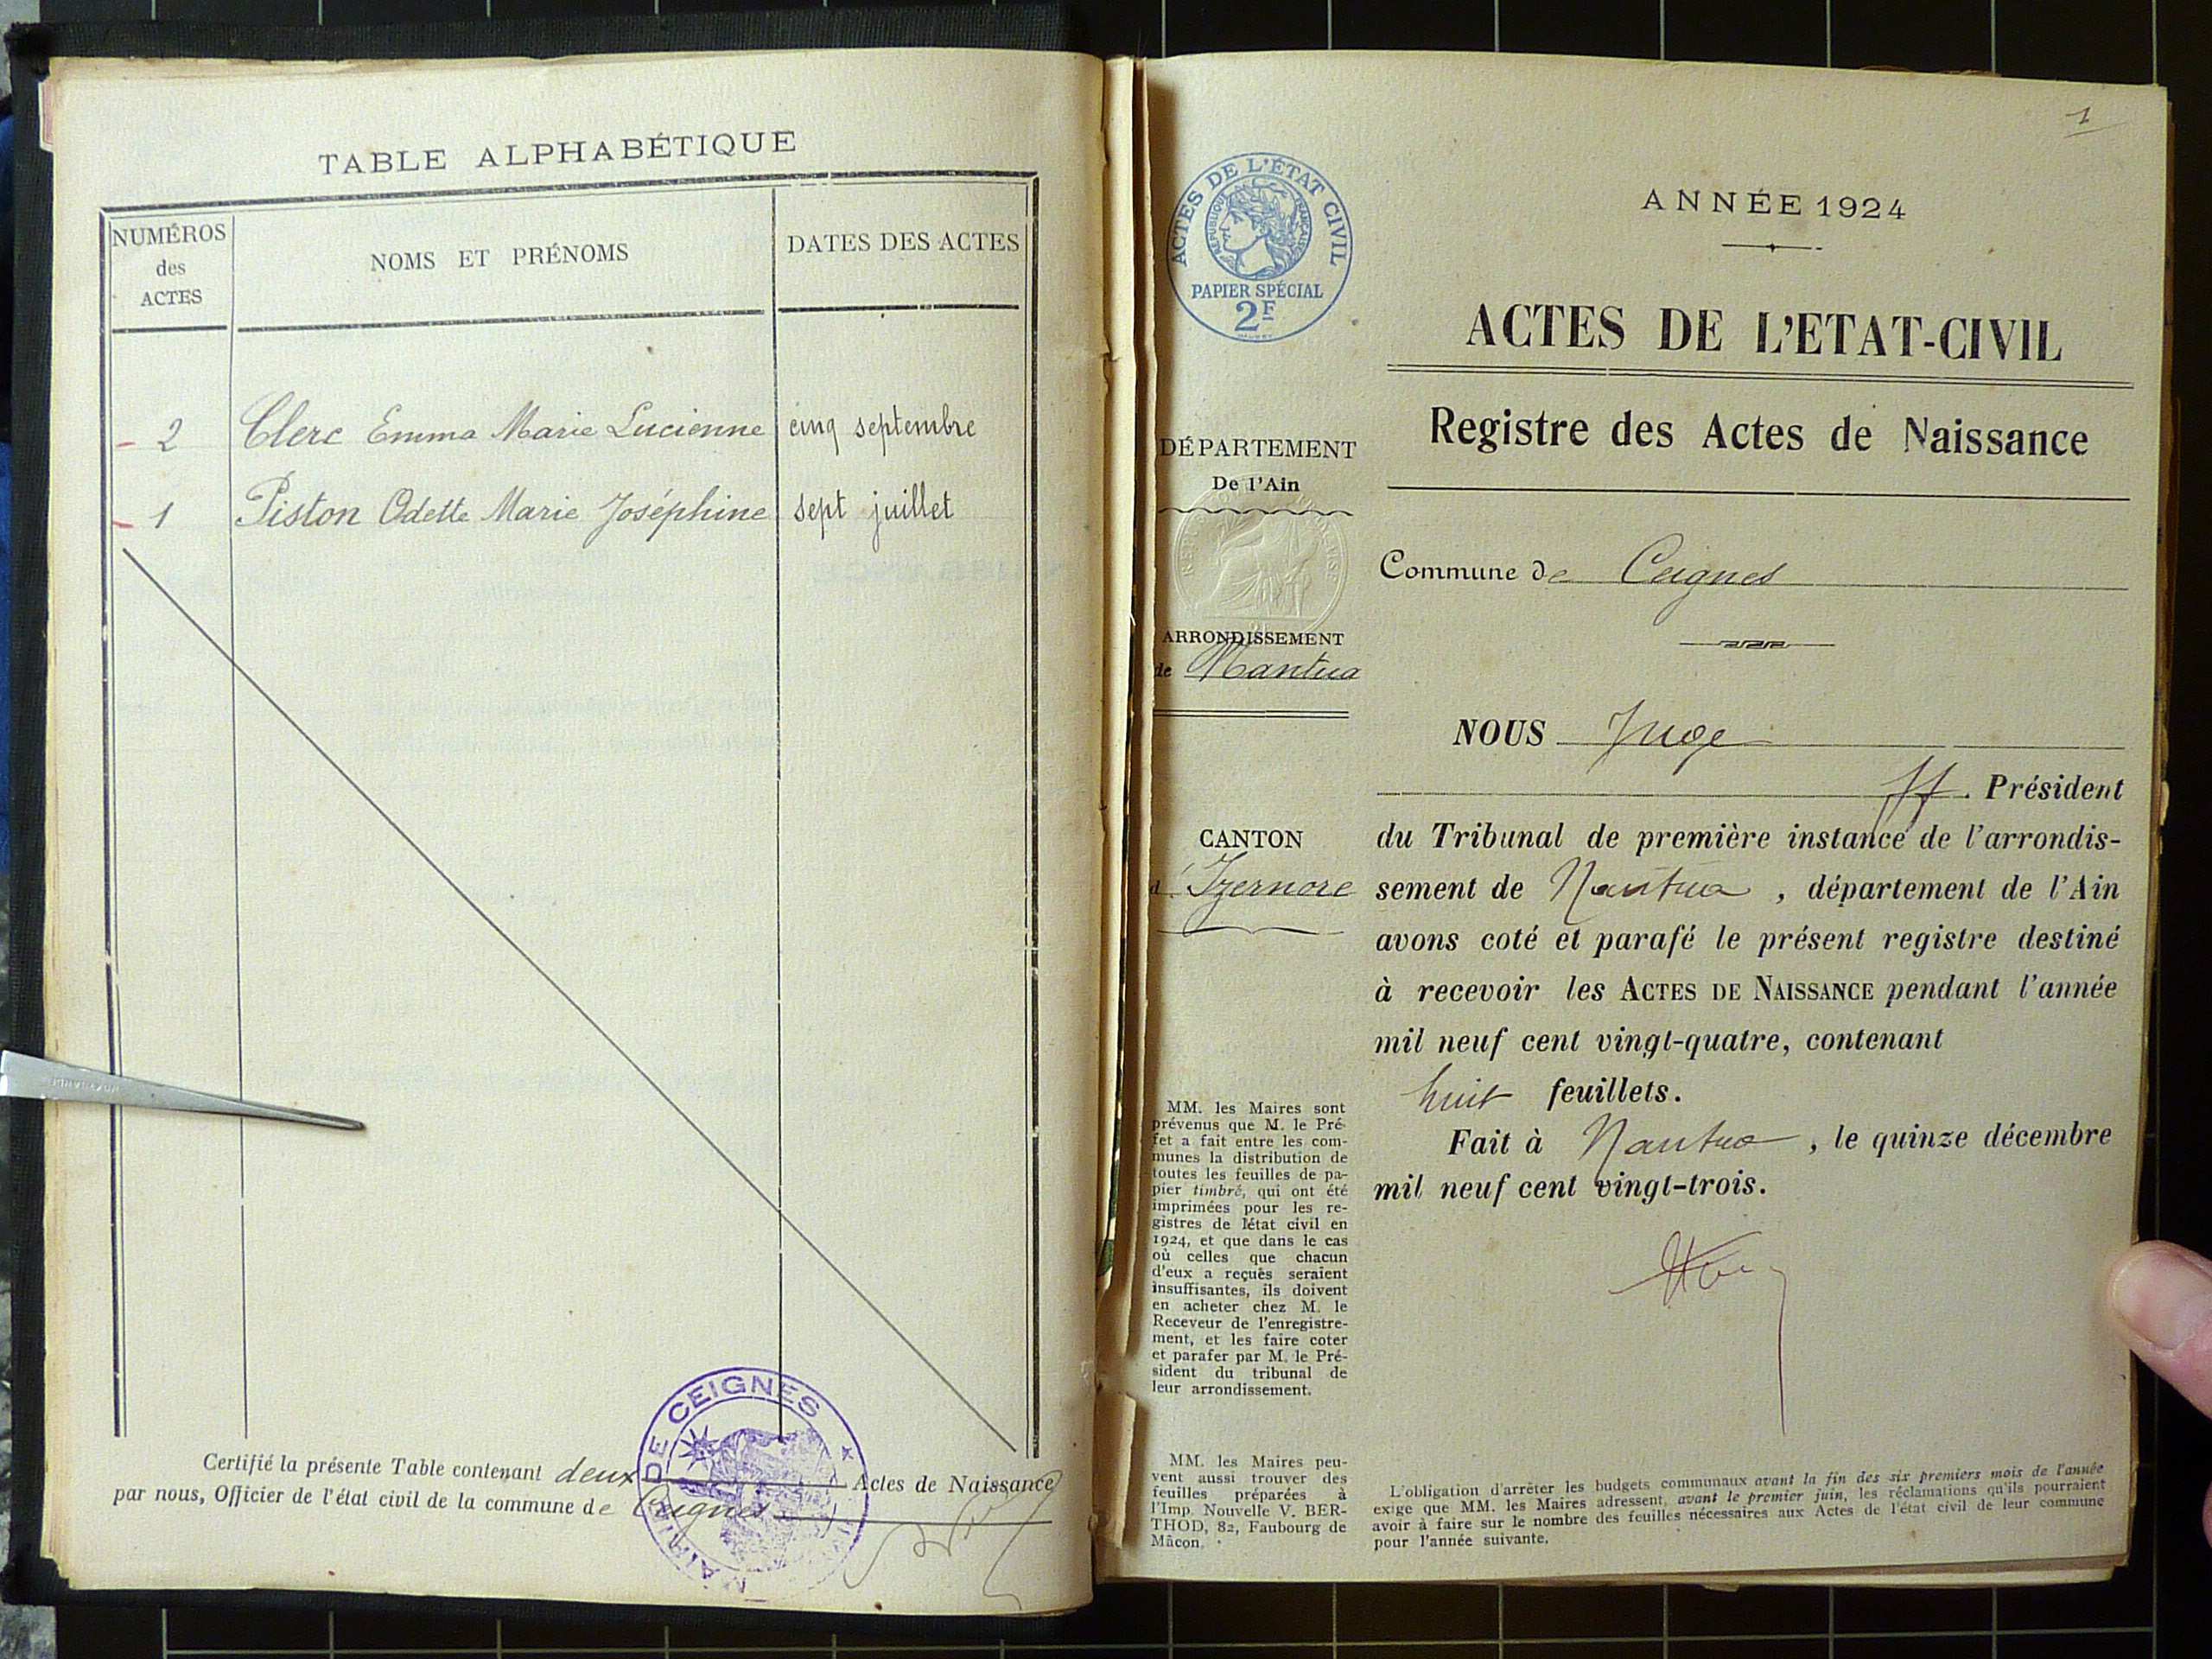 TABLE ALPHABÉTIQUE
NUMÉROS
des
ACTES
NOMS ET PRÉNOMS
DATES DES ACTES
2 Clerc Emma Marie Lucienne cinq septembre
1 Piston Odette Marie Joséphine sept juillet
Certifié la présente Table contenant deux Actes de Naissance
par nous, Officier de l'état civil de la commune de Ceignes
MAIRIE DE CEIGNES
1
ACTES DE L'ÉTAT CIVIL
RÉPUBLIQUE FRANÇAISE
PAPIER SPÉCIAL
2F
DÉPARTEMENT
De l'Ain
ARRONDISSEMENT
de Nantua
CANTON
d'Izernore
MM. les Maires sont
prévenus que M. le Pré-
fet a fait entre les com-
munes la distribution de
toutes les feuilles de pa-
pier timbré, qui ont été
imprimées pour les re-
gistres de létat civil en
1924, et que dans le cas
où celles que chacun
d'eux a reçues seraient
insuffisantes, ils doivent
en acheter chez M. le
Receveur de l'enregistre-
ment, et les faire coter
et parafer par M. le Pré-
sident du tribunal de
leur arrondissement.
MM. les Maires peu-
vent aussi trouver des
feuilles préparées à
l'Imp. Nouvelle V. BER-
THOD, 82, Faubourg de
Mâcon.
ANNÉE 1924
ACTES DE L'ETAT-CIVIL
Registre des Actes de Naissance
Commune de Ceignes
NOUS Juge
ff. Président
du Tribunal de première instance de l'arrondis-
sement de Nantua, département de l'Ain
avons coté et parafé le présent registre destiné
à recevoir les ACTES DE NAISSANCE pendant l'année
mil neuf cent vingt-quatre, contenant
huit feuillets.
Fait à Nantua, le quinze décembre
mil neuf cent vingt-trois.
L'obligation d'arrêter les budgets communaux avant la fin des six premiers mois de l'année
exige que MM. les Maires adressent, avant le premier juin, les réclamations qu'ils pourraient
avoir à faire sur le nombre des feuilles nécessaires aux Actes de l'état civil de leur commune
pour l'année suivante.